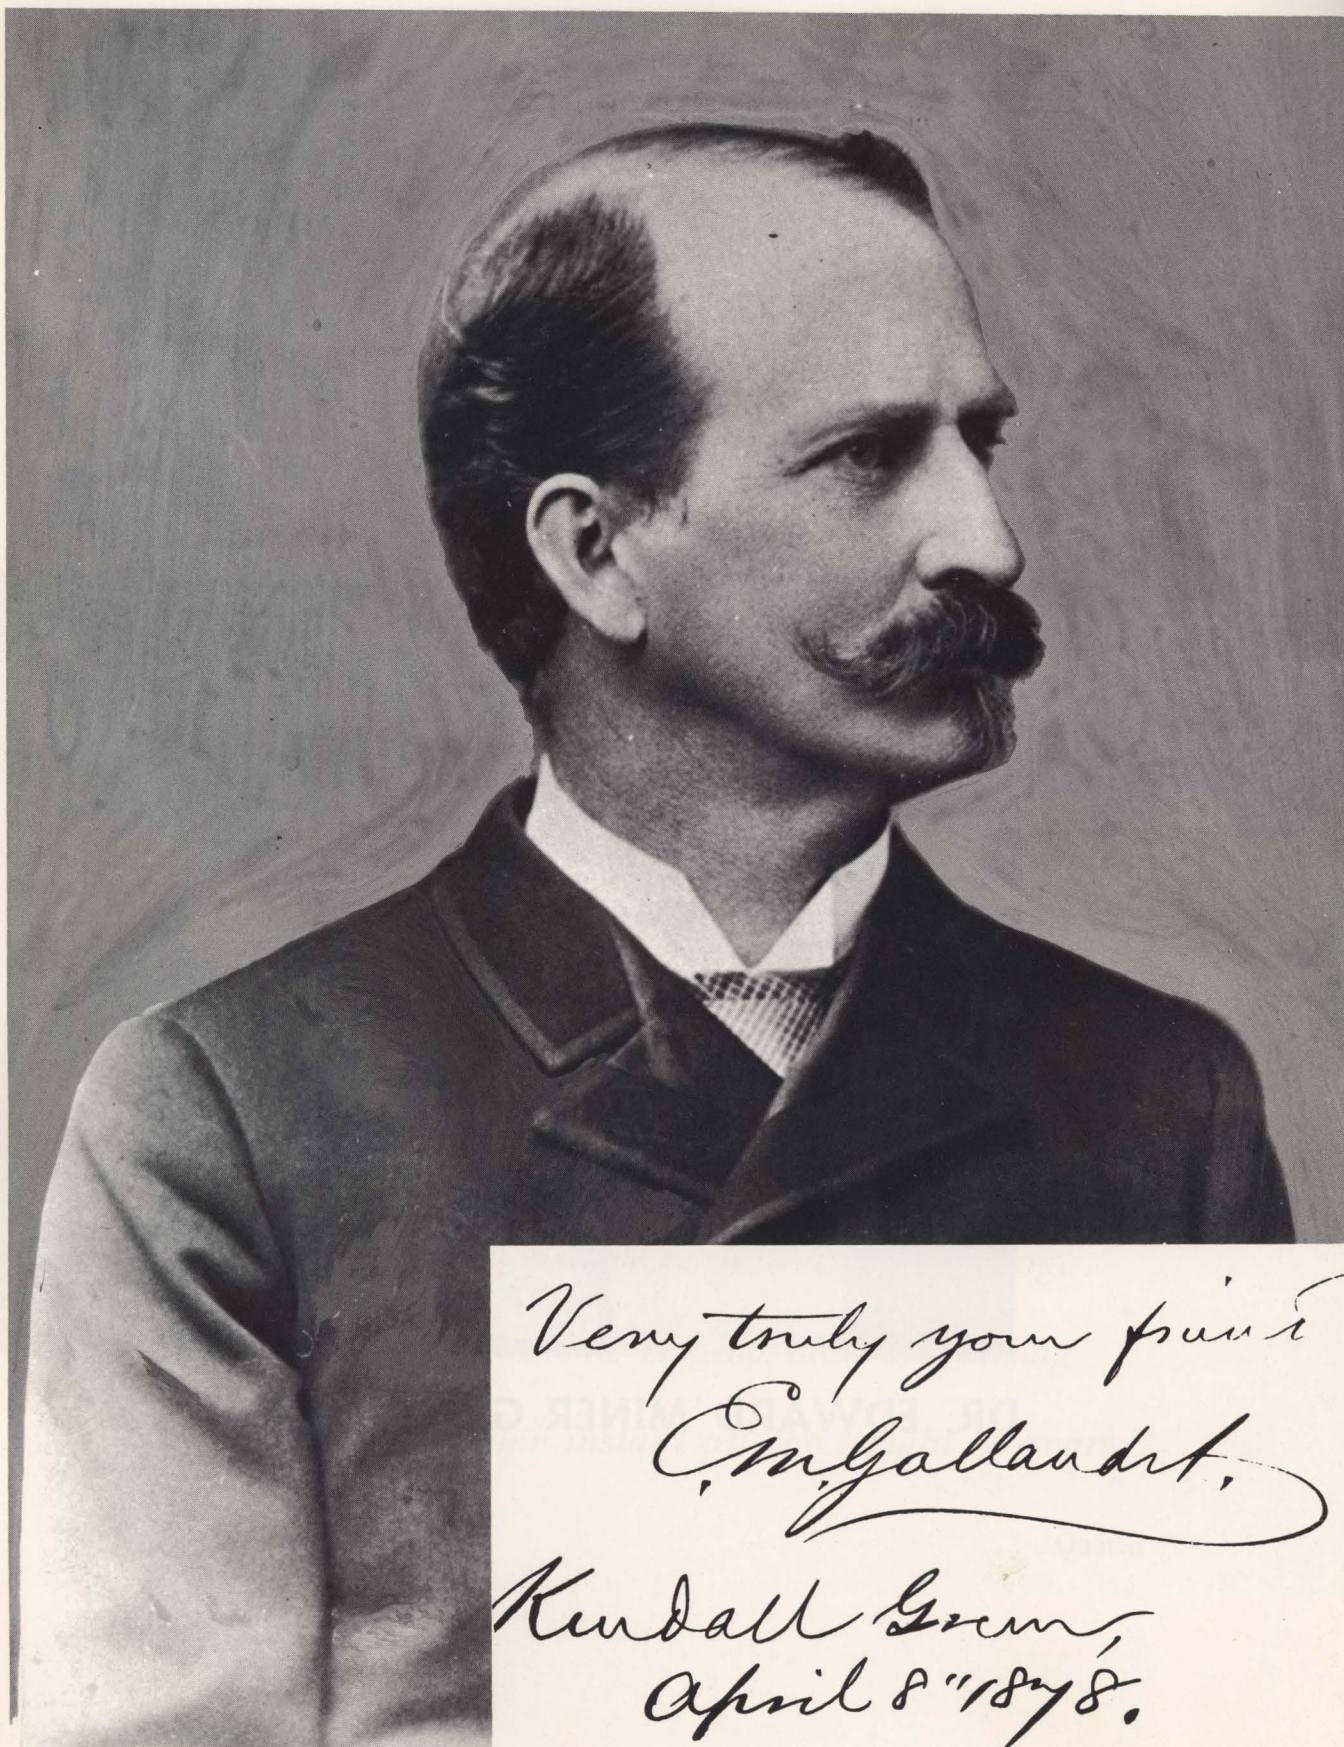 Very truly your friend
E.M. Gallaudet.
Kendall Green,
April 8" 1878.